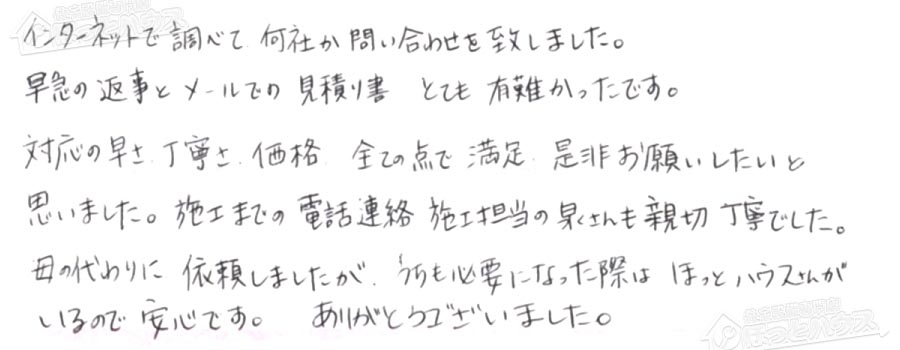 インターネットで調べて 何社か問い合わせを致しました。
早急の返事とメールでの見積り書 とても有難かったです。
対応の早さ、丁寧さ、価格 全ての点で満足、是非お願いしたいと
思いました。施工までの電話連絡 施工担当の さんも親切丁寧でした。
母の代わりに依頼しましたが、うちも必要になった際は ほっとハウスさんが
いるので安心です。 ありがとうございました。
ほっとハウス